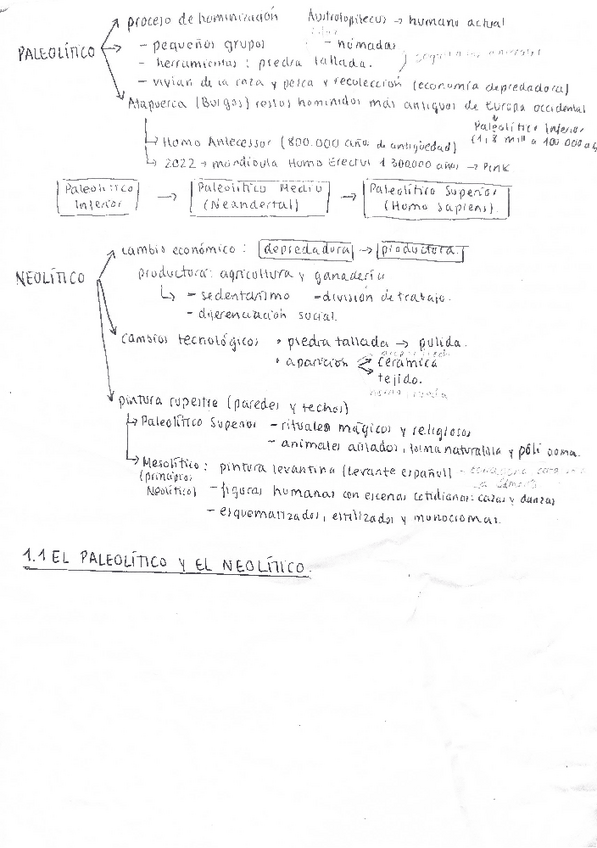 proceso de hominización Australopitecus → humano actual
PALEOLÍTICO
- pequeños grupos - nómadas
- herramientas: piedra tallada.
- vivían de la caza y pesca y recolección (economía depredadora)
Atapuerca (Burgos) restos homínidos más antiguos de Europa occidental
Paleolítico Inferior
↳ Homo Antecessor (800.000 años de antigüedad)
↳ 2022 → mandíbula Homo Erectus 1 300.000 años → Pink
Paleolítico Inferior → Paleolítico Medio (Neandertal) → Paleolítico Superior (Homo sapiens).
cambio económico: depredadora → productora.
NEOLÍTICO
productora: agricultura y ganadería
↳ - sedentarismo - división de trabajo.
- diferenciación social.
cambios tecnológicos • piedra tallada → pulida.
• aparición cerámica
tejido.
pintura rupestre (paredes y techos)
↳ Paleolítico Superior - rituales mágicos y religiosos
- animales aislados, forma naturalista y póli croma.
↳ Mesolítico: pintura levantina (levante español)
(principios
Neolítico) - figuras humanas con escenas cotidianas: cazas y danzas
- esquematizados, estilizados y monocromas.
1.1 EL PALEOLÍTICO Y EL NEOLÍTICO.